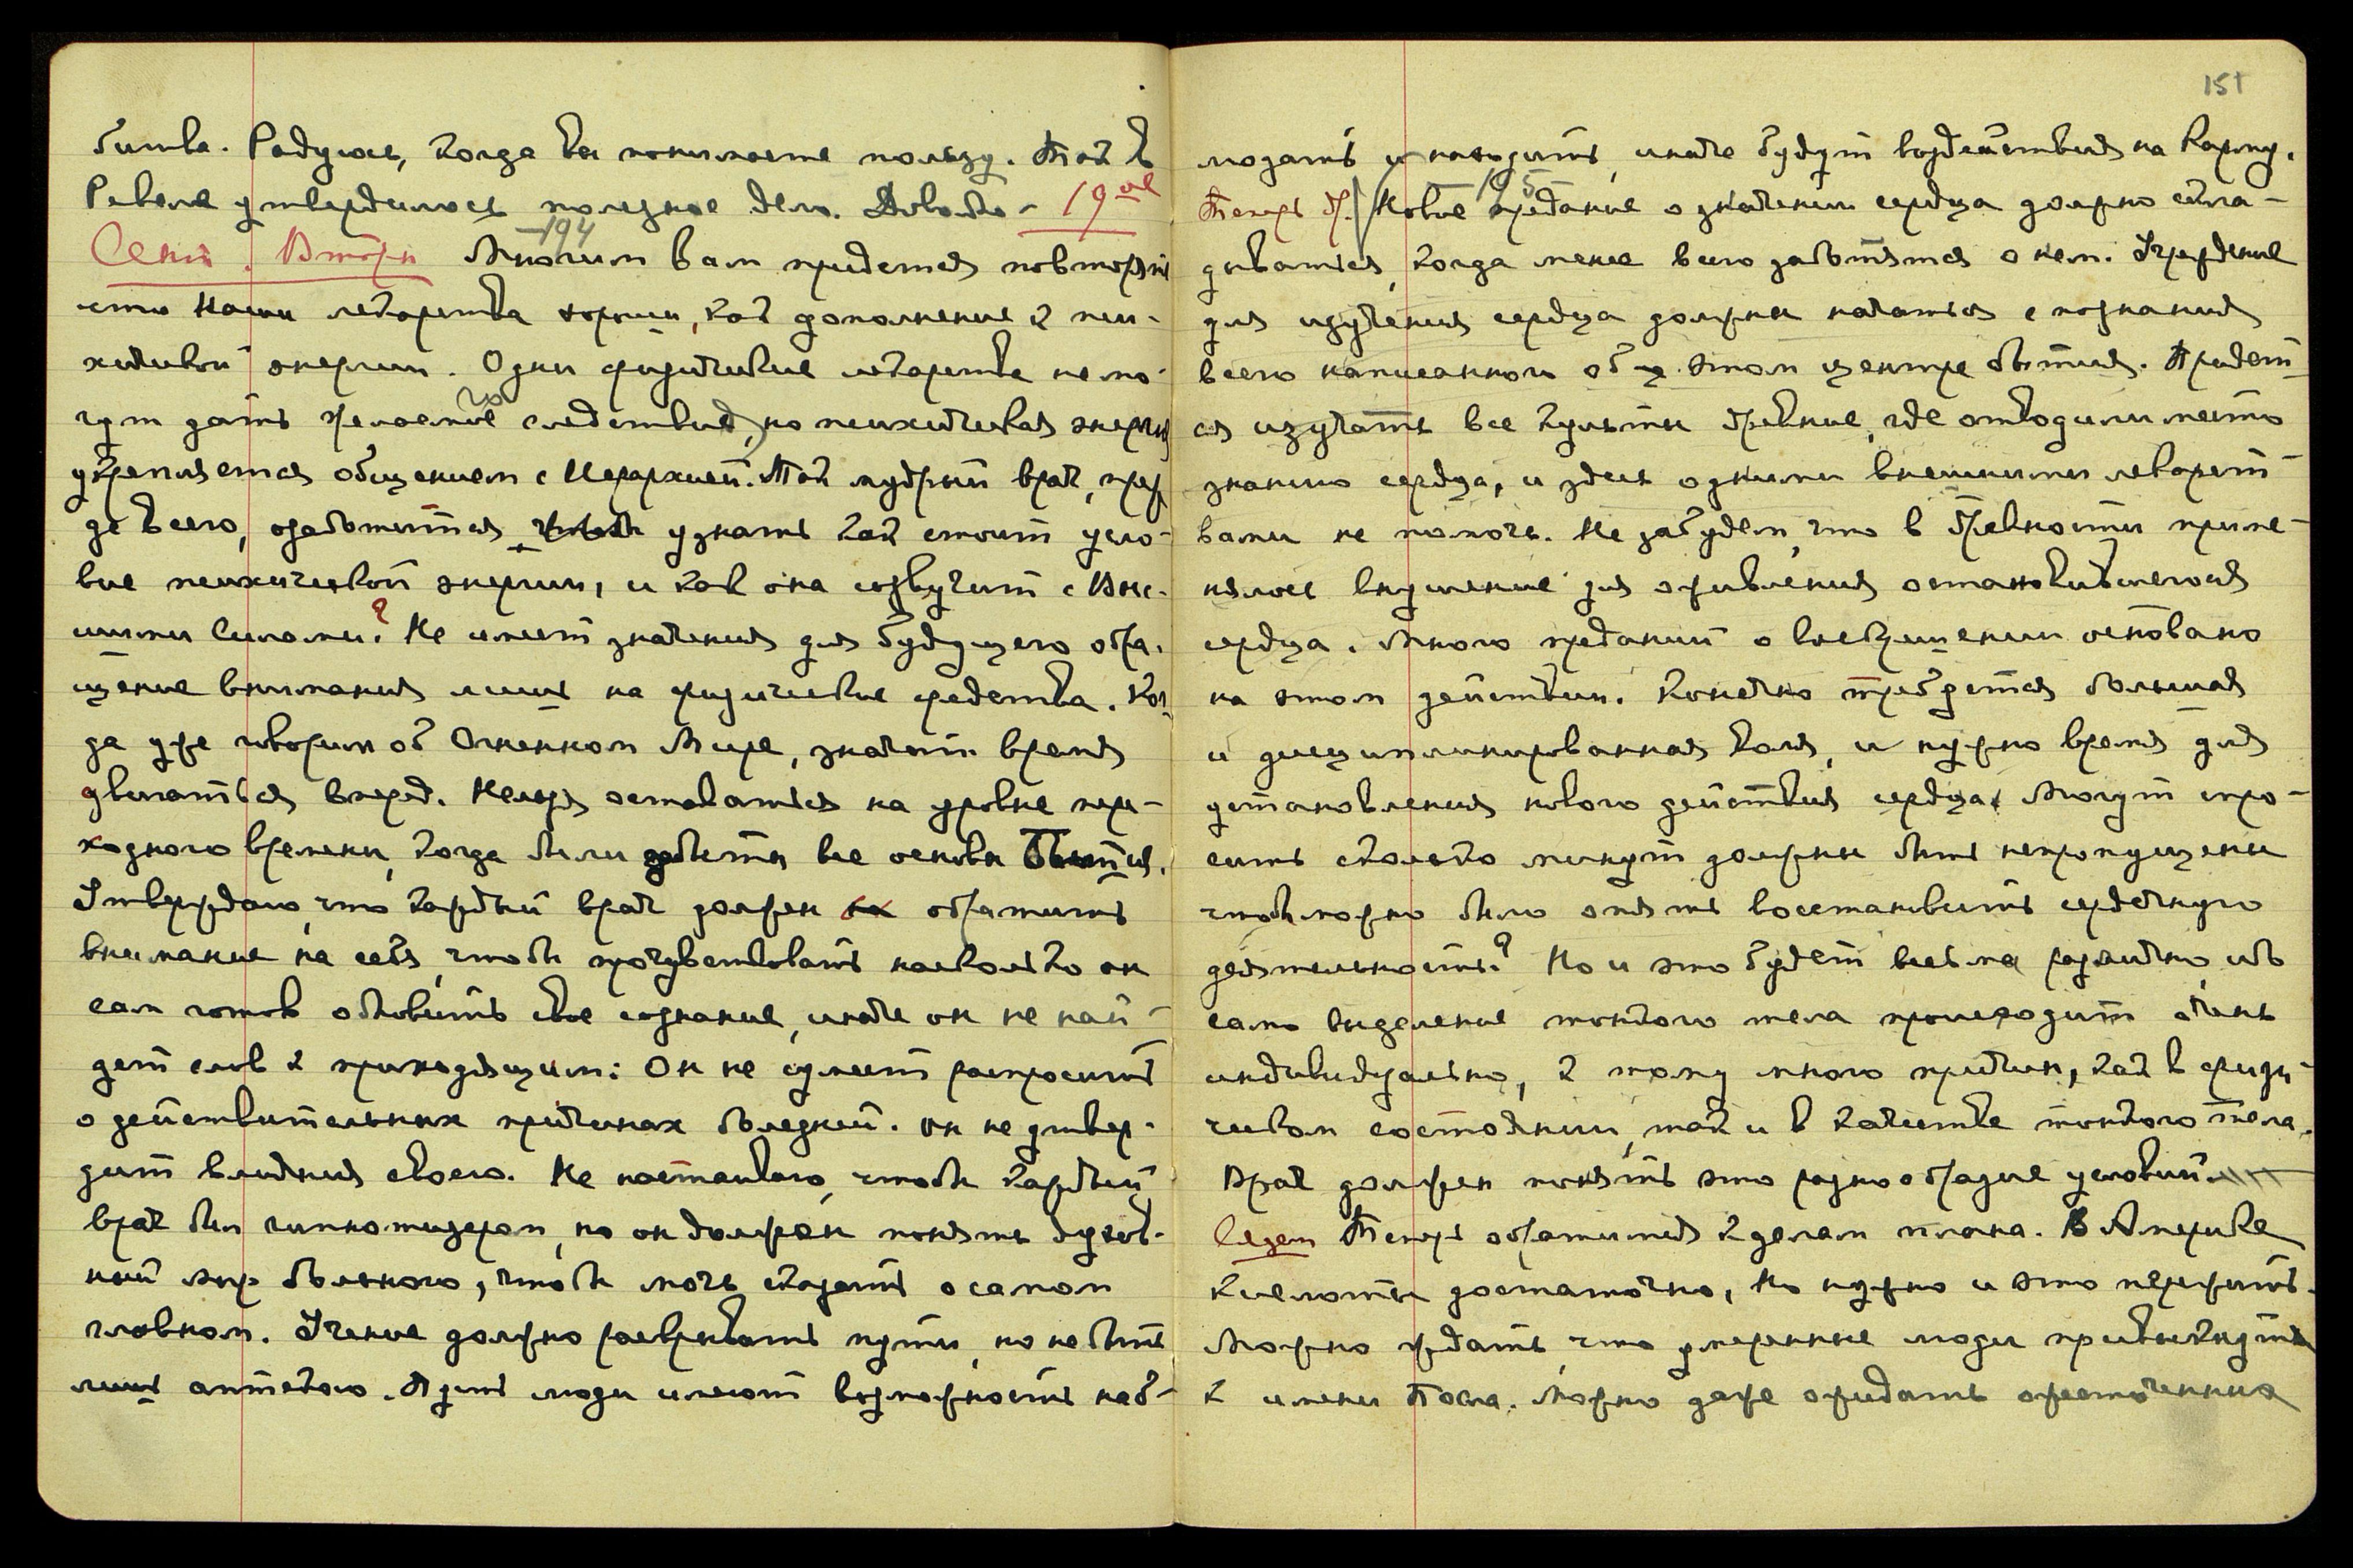 битва. Радуюсь, когда вы понимаете пользу. Так в
Ревеле утвердилось полезное дело. Довольно – 19ое
Сент. Вторн —194 Многим вам придется повторять
что Наши лекарства хороши, как дополнение к пси-
хической энергии. Одни физические лекарства не мо-
гут дать желаемые го следствия, но психическая энергия
укрепляется общением с Иерархией. Так мудрый врач, преж
де всего, озаботится узнать как стоит усло-
вие психической энергии, и как она созвучит с Выс-
шими Силами? Не имеет значения для будущего обра-
щение внимания лишь на физические средства. Ког-
да уже говорим об Огненном Мире, значит время
двигаться вперед. Нельзя оставаться на уровне пере-
ходного времени, когда были забыты все основы Бытия.
Утверждаю, что каждый врач должен обратить
внимание на себя, чтобы прочувствовать насколько он
сам готов обновить свое сознание, иначе он не най-
дет слов к приходящим: Он не сумеет распросить
о действительных причинах болезней. Он не утвер-
дит влияния своего. Не настаиваю, чтобы каждый
врач был гипнотизером, но он должен понять духов-
ный мир больного, чтобы мочь сказать о самом
главном. Учение должно раскрывать пути, но не быть
лишь аптекою. Пусть люди имеют возможность наб-
151
людать и находить, иначе будут воздействия на Карму.
Теперь др. 195 Новое предание о значении сердца должно скла-
дываться, когда менее всего заботятся о нем. Учреждение
для изучения сердца должны начаться с познания
всего написанного об этом центре бытия. Придет-
ся изучать все культы древние, где отводили место
знанию сердца, и здесь одними внешними лекарст-
вами не помочь. Не забудем, что в древности приме-
нялось внушение для оживления остановившегося
сердца. Много преданий о воскрешении основано
на этом действии. Конечно требуется большая
и дисциплинированная воля, и нужно время для
установления нового действия сердца. Могут спро-
сить сколько минут должны быть непропущены
чтобы можно было опять восстановить сердечную
деятельность? Но и это будет весьма различно, ибо
само выделение тонкого тела происходит очень
индивидуально, к тому много причин, как в физи-
ческом состоянии, так и в качестве тонкого тела.
Врач должен понять это разнообразие условий.
Седем Теперь обратимся к делам плана. В Америке
кислоты достаточно, но нужно и это пережить.
Можно ждать, что умеренные люди привыкнуть
к имени Посла. Можно даже ожидать ожесточения